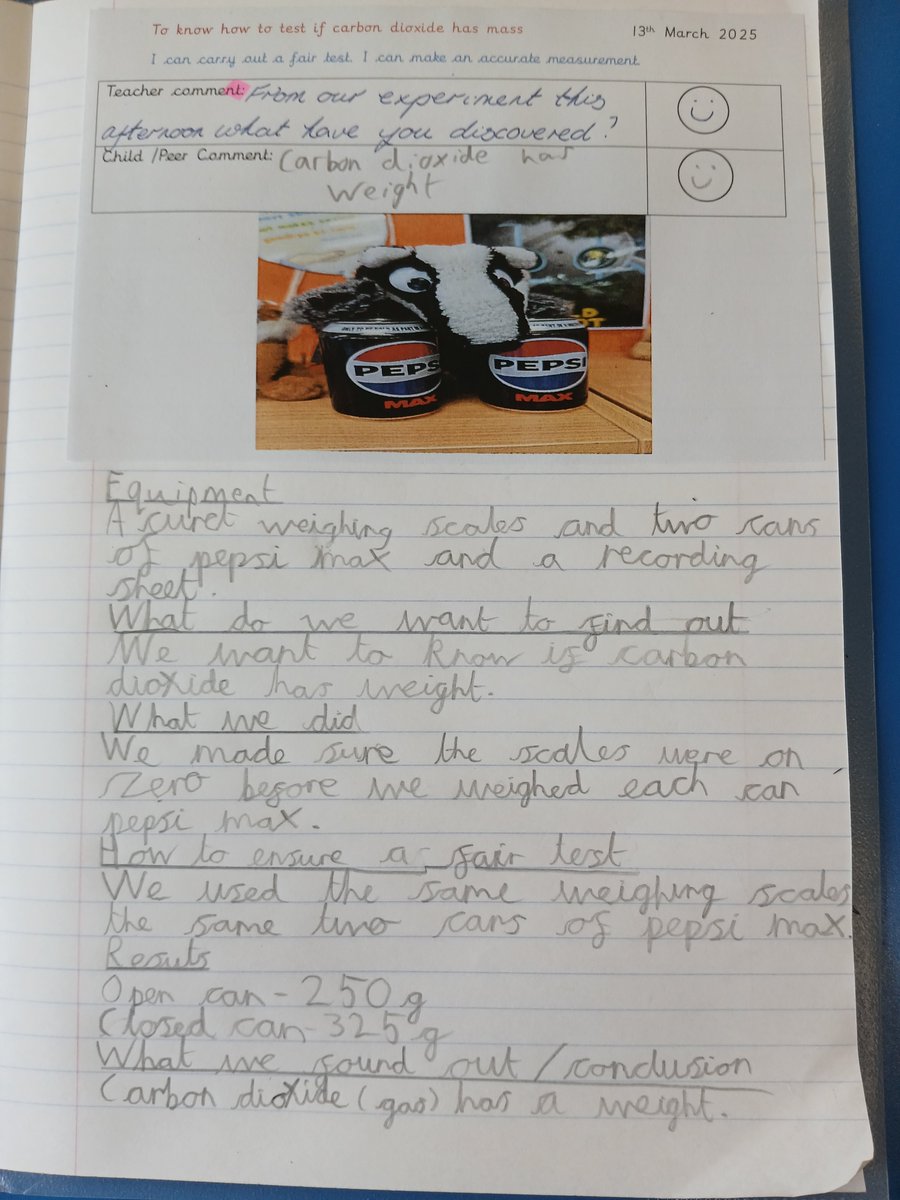 To know how to test if carbon dioxide has mass
13th March 2025
I can carry out a fair test. I can make an accurate measurement.
Teacher comment: From our experiment this
afternoon what have you discovered?
Child /Peer Comment: Carbon dioxide has
weight
PEPSI
MAX
PEPSI
MAX
Equipment
A curet weighing scales and two cans
of pepsi max and a recording
sheet.
What do we want to find out
We want to know if carbon
dioxide has weight.
What we did
We made sure the scales were on
Zero before we weighed each can
pepsi max.
How to ensure a fair test
We used the same weighing scales
the same two cans of pepsi max.
Resuts
Open can - 250g
Closed can - 325g
What we found out / conclusion
Carbon dioxide (gas) has a weight.